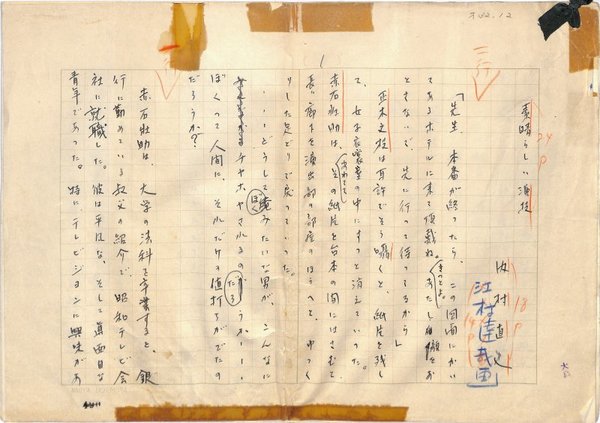 素晴らしい演技
内村直也
江村達哉画
「先生 本番が終ったら、この図面にかい
てあるホテルに来て頂戴ね。きっとよ。あたし
ともないで、先に行って待ってるから」
正木文枝は耳許でそう囁くと、紙片を残し
て、女子衣裳室の中にすっと消えていった。
赤石壮助は、あわててその紙片を台本の間にはさむと
長い廊下を演出部の部屋のほうへと、ゆっく
りした足どりで戻っていった。
……どうしてぼくみたいな男が、こんなに
チヤホヤされるのだろうか……
ぼくって人間に、それだけの値打ちがでたの
だろうか?
赤石壮助は、大学の法科を卒業すると、銀
行に勤めている叔父の紹介で、昭和テレビ会
社に就職した。彼は平凡な、そして真面目な
青年であった。特にテレビジョンに興味があ